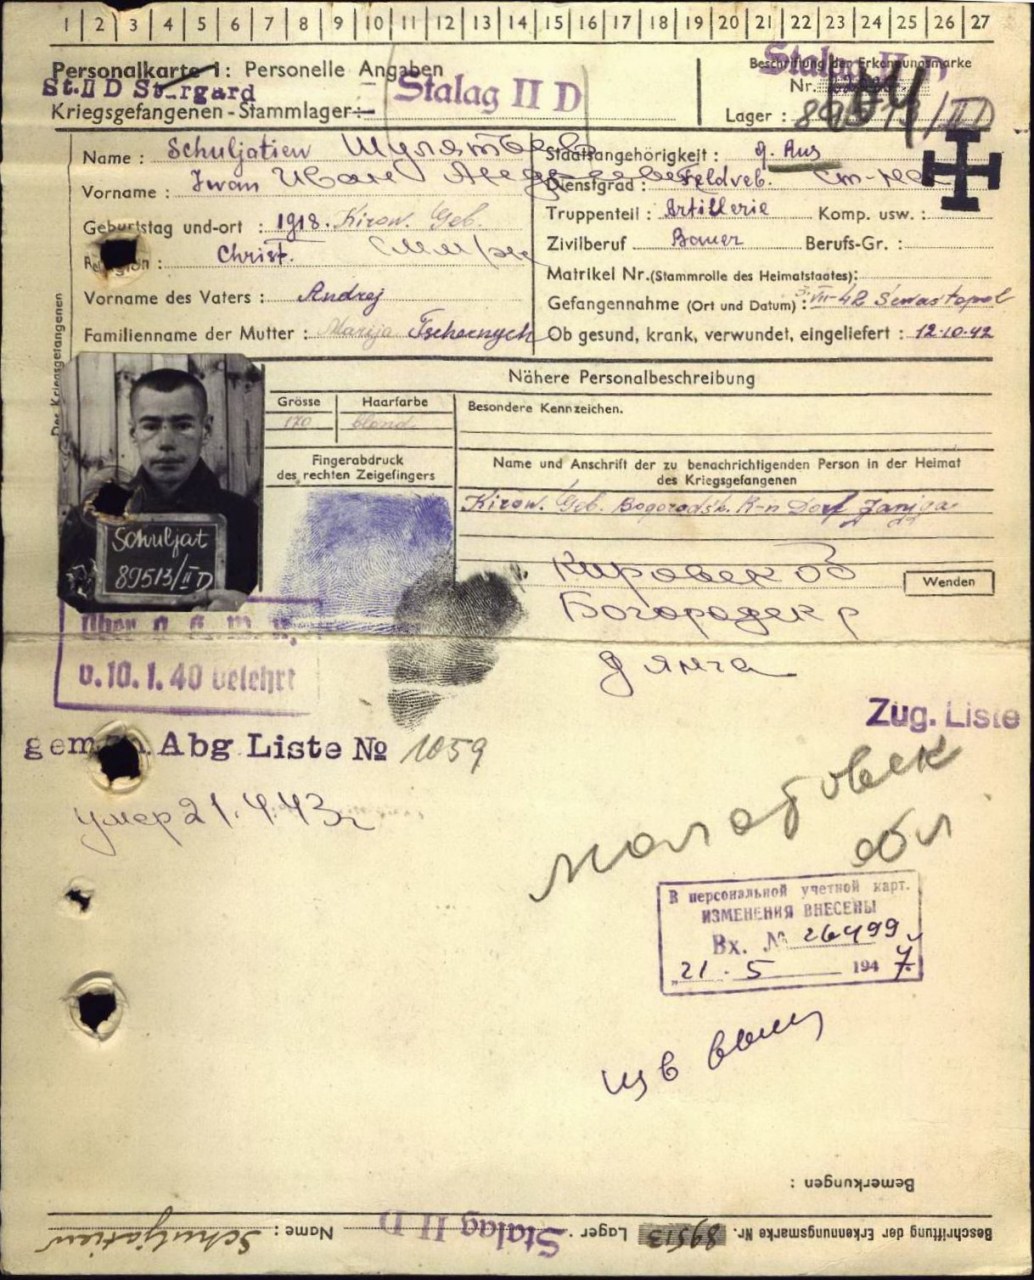 1 2 3 4 5 6 7 8 9 10 11 12 13 14 15 16 17 18 19 20 21 22 23 24 25 26 27
Personalkarte I: Personelle Angaben
St. II D Stargard
Kriegsgefangenen-Stammlager:
Stalag II D
Stalag II D
Beschriftung der Erkennungsmarke
Nr.
Lager : 89513/II D
Name : Schuljatiew
Staatsangehörigkeit :
Vorname : Iwan Иван
Dienstgrad : Feldveb.
Geburtstag und-ort : 1918. Kirow. Geb.
Truppenteil : Artillerie Komp. usw. :
Religion : Christ.
Zivilberuf Bauer Berufs-Gr. :
Matrikel Nr. (Stammrolle des Heimatstaates):
Vorname des Vaters : Andrej
Gefangennahme (Ort und Datum) : 3-VII-42 Sewastopol
Familienname der Mutter : Marija Tschernych
Ob gesund, krank, verwundet, eingeliefert : 12.10.42
Des Kriegsgefangenen
Nähere Personalbeschreibung
Grösse Haarfarbe
170 blond
Besondere Kennzeichen.
Fingerabdruck
des rechten Zeigefingers
Name und Anschrift der zu benachrichtigenden Person in der Heimat
des Kriegsgefangenen
Kirow. Geb. Bogorodsk. R-n Dorf
Schuljat
89513/II D
Wenden
v. 10. 1. 40 belehrt
Zug. Liste
Abg. Liste № 1059
умер 21.4.43г
обл
В персональной учетной карт.
ИЗМЕНЕНИЯ ВНЕСЕНЫ
Вх. № 26499
"21. 5 1947
Bemerkungen :
Beschriftung der Erkennungsmarke Nr. 89513 Lager Stalag II D Name : Schuljatiew